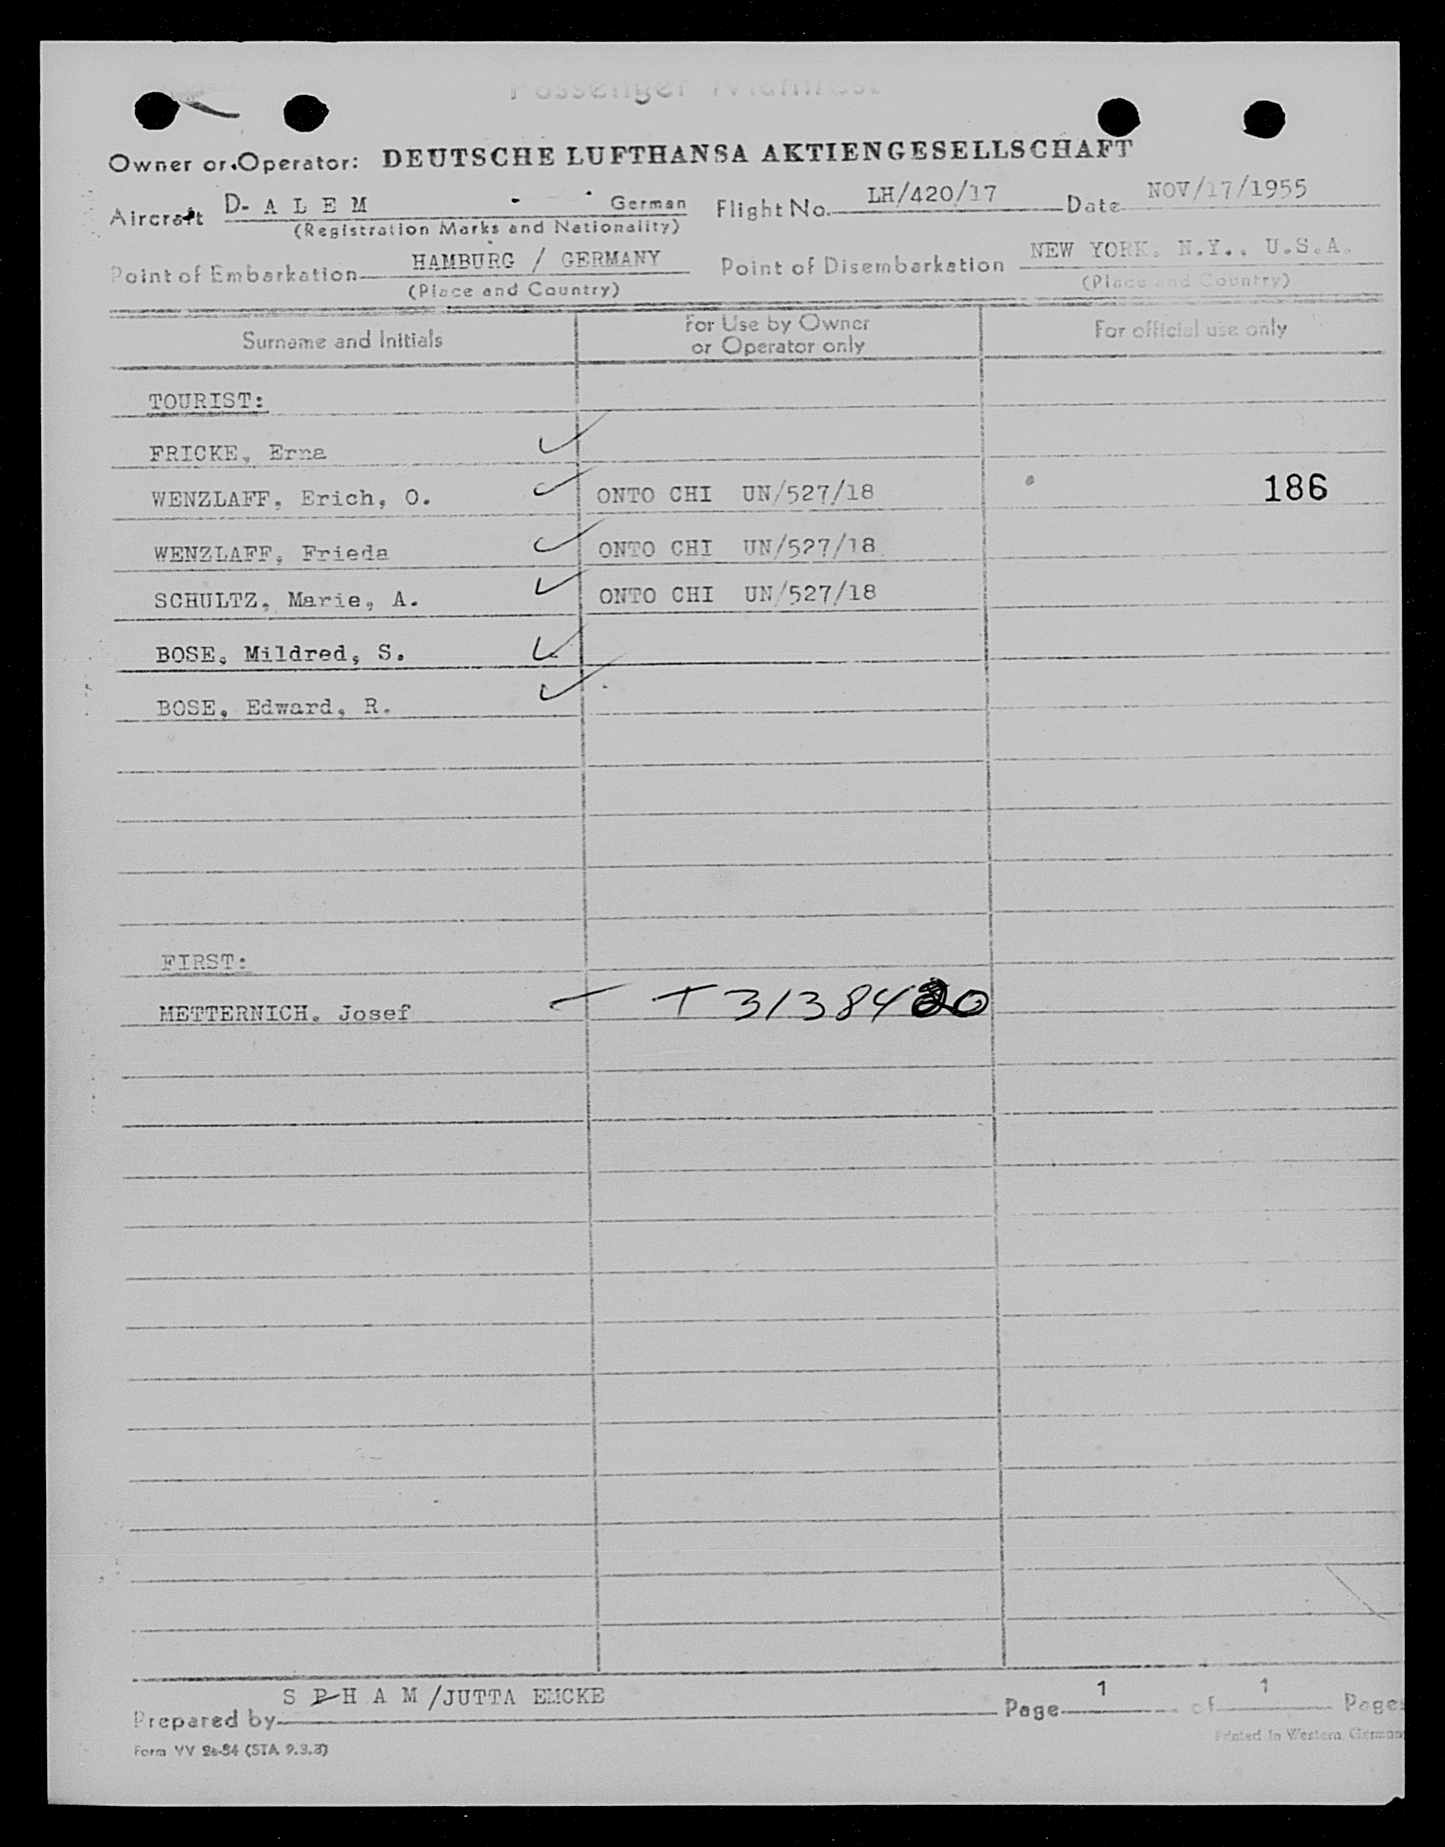 Passenger Manifest
Owner or Operator: DEUTSCHE LUFTHANSA AKTIENGESELLSCHAFT
Aircraft D- A L E M - German Flight No. LH/420/17 Date NOV/17/1955
(Registration Marks and Nationality)
Point of Embarkation HAMBURG / GERMANY Point of Disembarkation NEW YORK, N.Y., U.S.A.
(Place and Country) (Place and Country)
Surname and Initials For Use by Owner or Operator only For official use only
TOURIST:
FRICKE, Erna
WENZLAFF, Erich, O. ONTO CHI UN/527/18 186
WENZLAFF, Frieda ONTO CHI UN/527/18
SCHULTZ, Marie, A. ONTO CHI UN/527/18
BOSE, Mildred, S.
BOSE, Edward, R.
FIRST:
METTERNICH, Josef T 3138420
Prepared by S P H A M /JUTTA EMCKE Page 1 of 1 Pages
Form VV 26-54 (STA 9.3.3) Printed in Western Germany